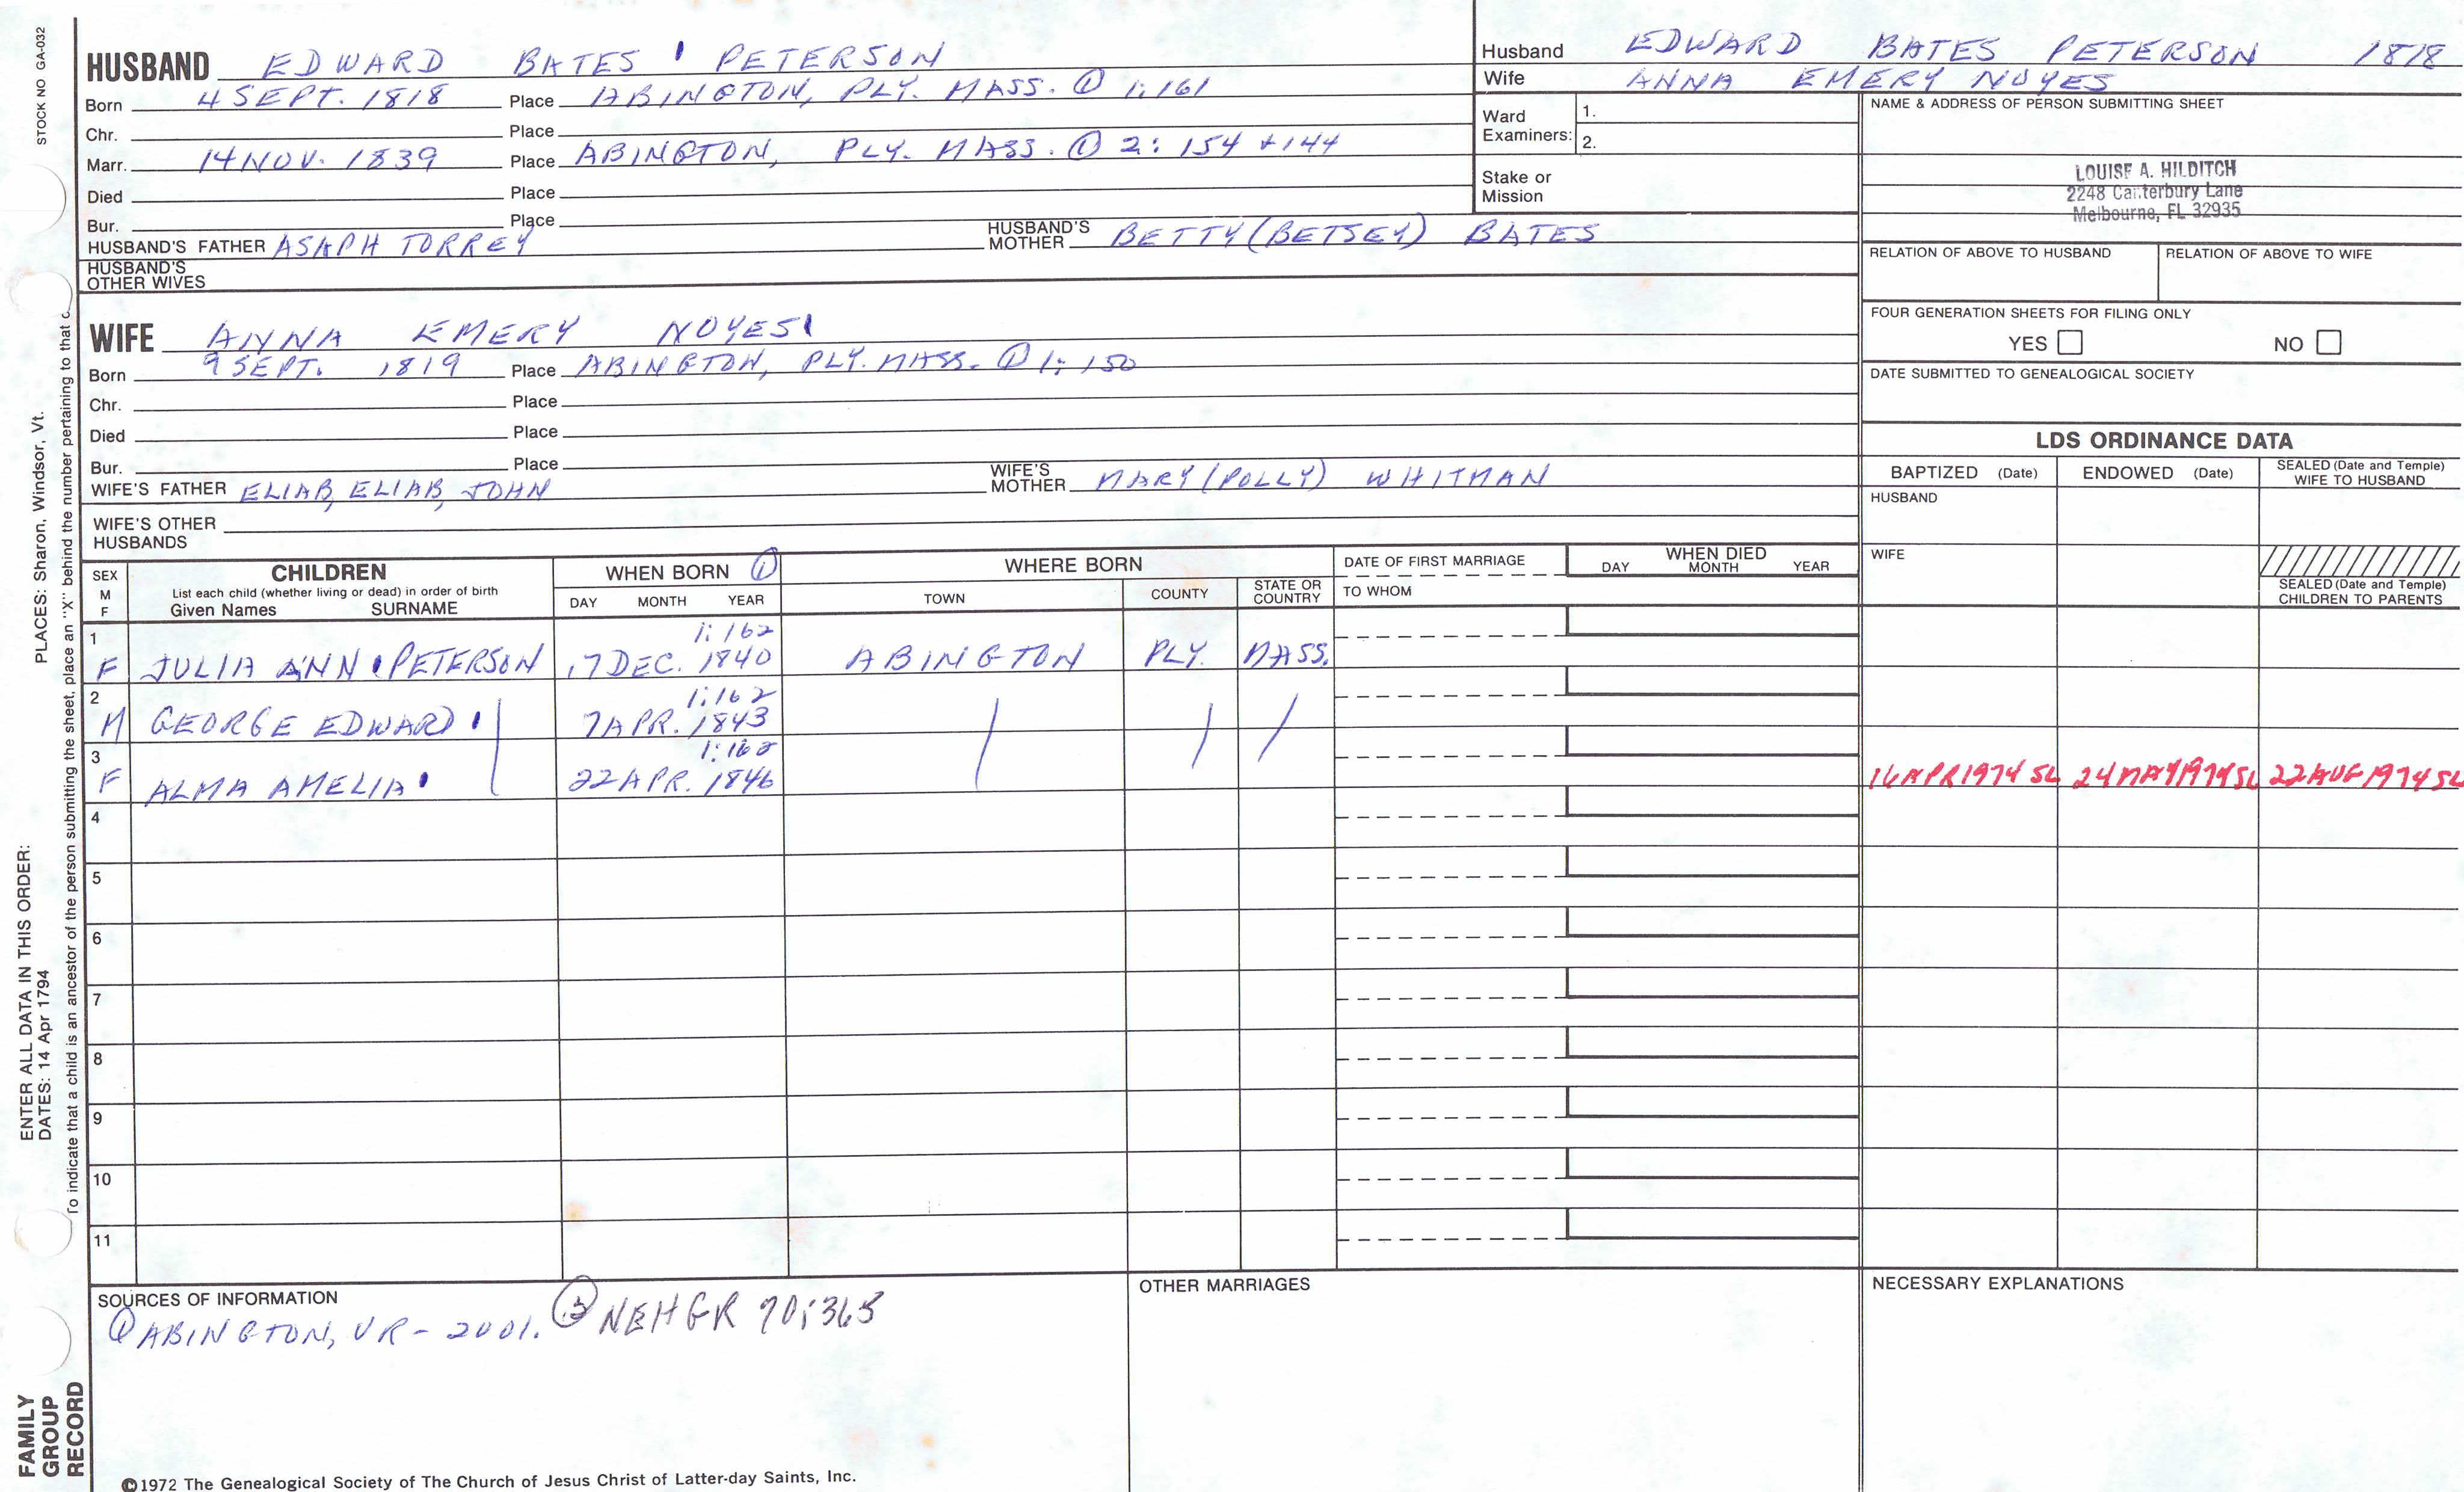 STOCK NO GA-032
PLACES: Sharon, Windsor, Vt.
ENTER ALL DATA IN THIS ORDER:
DATES: 14 Apr 1794
To indicate that a child is an ancestor of the person submitting the sheet, place an "X" behind the number pertaining to that c
FAMILY
GROUP
RECORD
HUSBAND EDWARD BATES PETERSON
Born 4 SEPT. 1818 Place ABINGTON, PLY. MASS. ① 1:161
Chr. Place
Marr. 14 NOV. 1839 Place ABINGTON, PLY. MASS. ① 2: 154 + 144
Died Place
Bur. Place
HUSBAND'S FATHER ASAPH TORREY HUSBAND'S MOTHER BETTY (BETSEY) BATES
HUSBAND'S
OTHER WIVES
Husband EDWARD BATES PETERSON 1818
Wife ANNA EMERY NOYES
Ward
Examiners: 1.
2.
Stake or
Mission
NAME & ADDRESS OF PERSON SUBMITTING SHEET
LOUISE A. HILDITCH
2248 Canterbury Lane
Melbourne, FL 32935
RELATION OF ABOVE TO HUSBAND RELATION OF ABOVE TO WIFE
FOUR GENERATION SHEETS FOR FILING ONLY
YES NO
DATE SUBMITTED TO GENEALOGICAL SOCIETY
WIFE ANNA EMERY NOYES
Born 9 SEPT. 1819 Place ABINGTON, PLY. MASS. ① 1: 150
Chr. Place
Died Place
Bur. Place
WIFE'S FATHER ELIAB, ELIAB, JOHN WIFE'S MOTHER MARY (POLLY) WHITMAN
WIFE'S OTHER
HUSBANDS
LDS ORDINANCE DATA
BAPTIZED (Date) ENDOWED (Date) SEALED (Date and Temple) WIFE TO HUSBAND
HUSBAND
WIFE
SEALED (Date and Temple)
CHILDREN TO PARENTS
SEX
M
F
CHILDREN
List each child (whether living or dead) in order of birth
Given Names SURNAME
WHEN BORN ①
DAY MONTH YEAR
WHERE BORN
TOWN COUNTY STATE OR COUNTRY
DATE OF FIRST MARRIAGE
TO WHOM
WHEN DIED
DAY MONTH YEAR
1 1:162
F JULIA ANN PETERSON 17 DEC. 1840 ABINGTON PLY. MASS.
2 1:162
M GEORGE EDWARD 7 APR. 1843
3 1:162
F ALMA AMELIA 22 APR. 1846 16 APR 1974 SL 24 MAY 1974 SL 22 AUG 1974 SL
4
5
6
7
8
9
10
11
SOURCES OF INFORMATION
① ABINGTON, VR - 2001. ③ NEHGR 70:365
OTHER MARRIAGES
NECESSARY EXPLANATIONS
©1972 The Genealogical Society of The Church of Jesus Christ of Latter-day Saints, Inc.